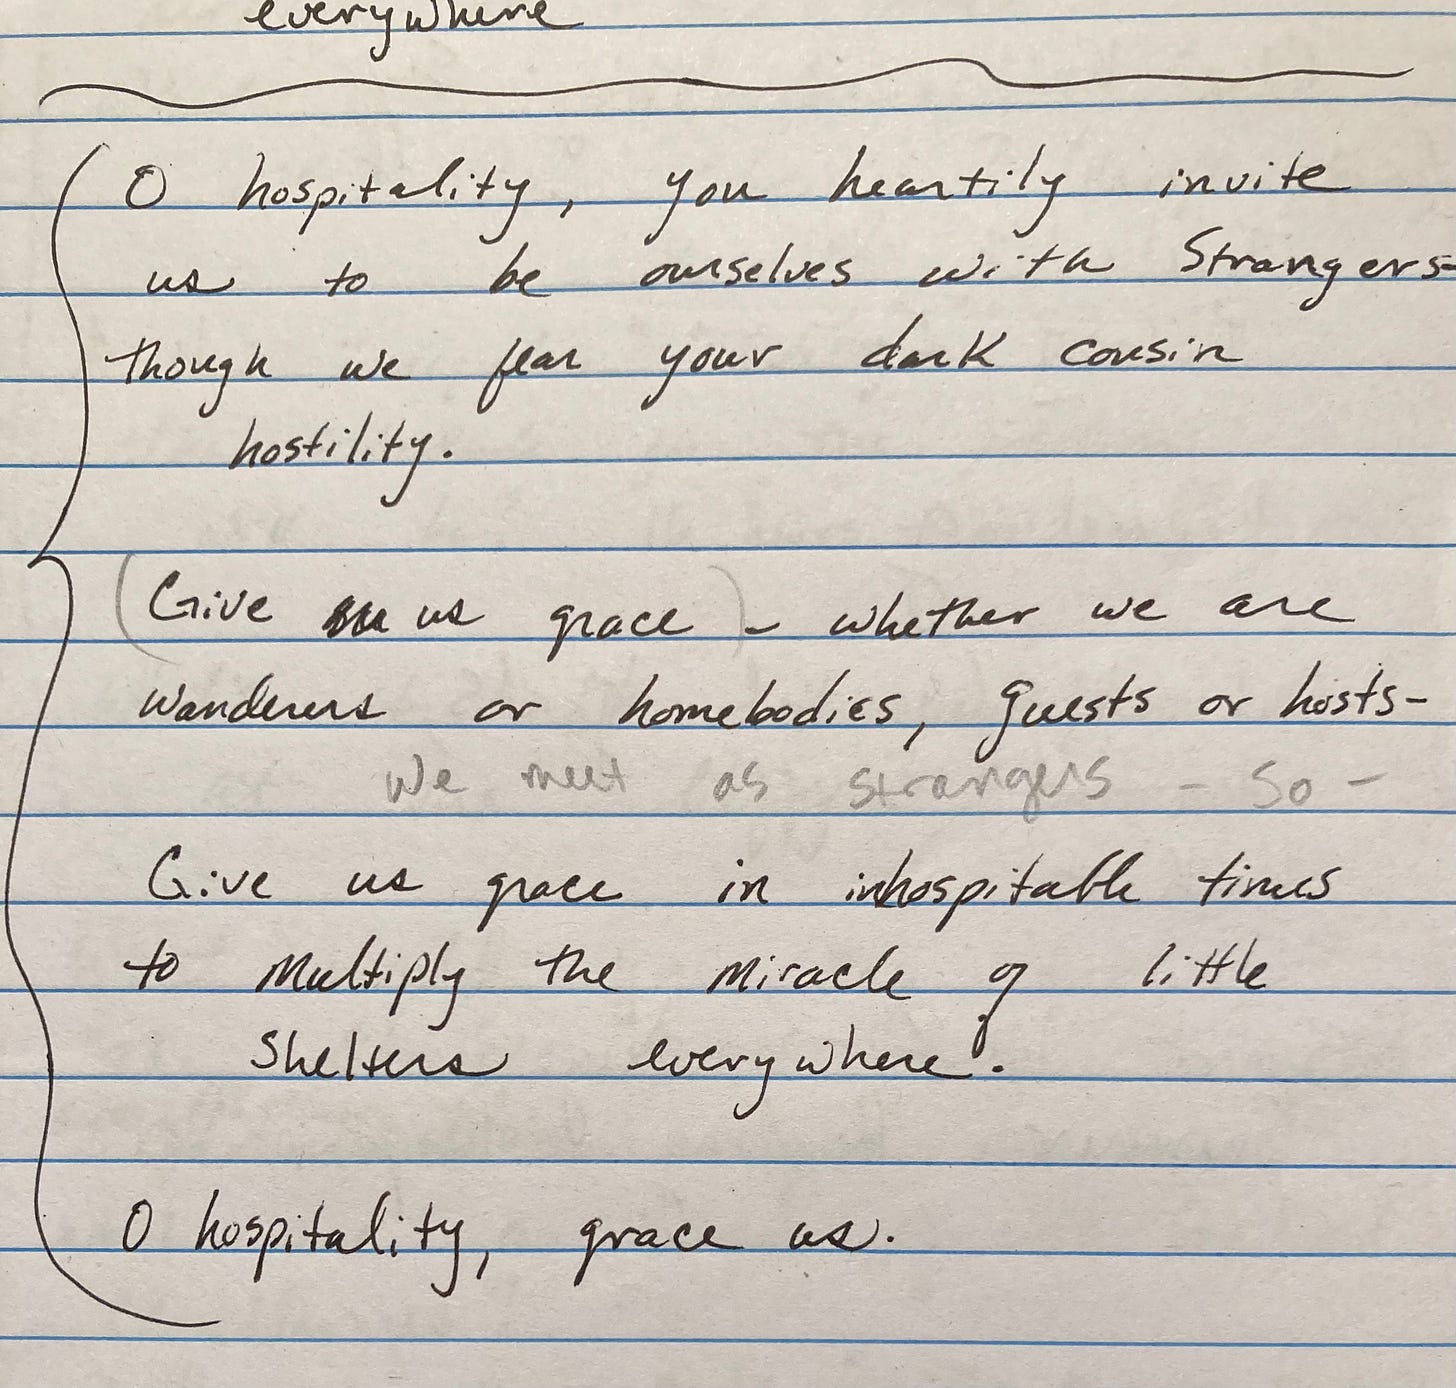 everywhere
O hospitality, you heartily invite
us to be ourselves with Strangers-
though we fear your dark cousin
hostility.
(Give us grace) - whether we are
wanderers or homebodies, guests or hosts-
We meet as strangers - So -
Give us grace in inhospitable times
to multiply the miracle of little
Shelters everywhere.
O hospitality, grace us.